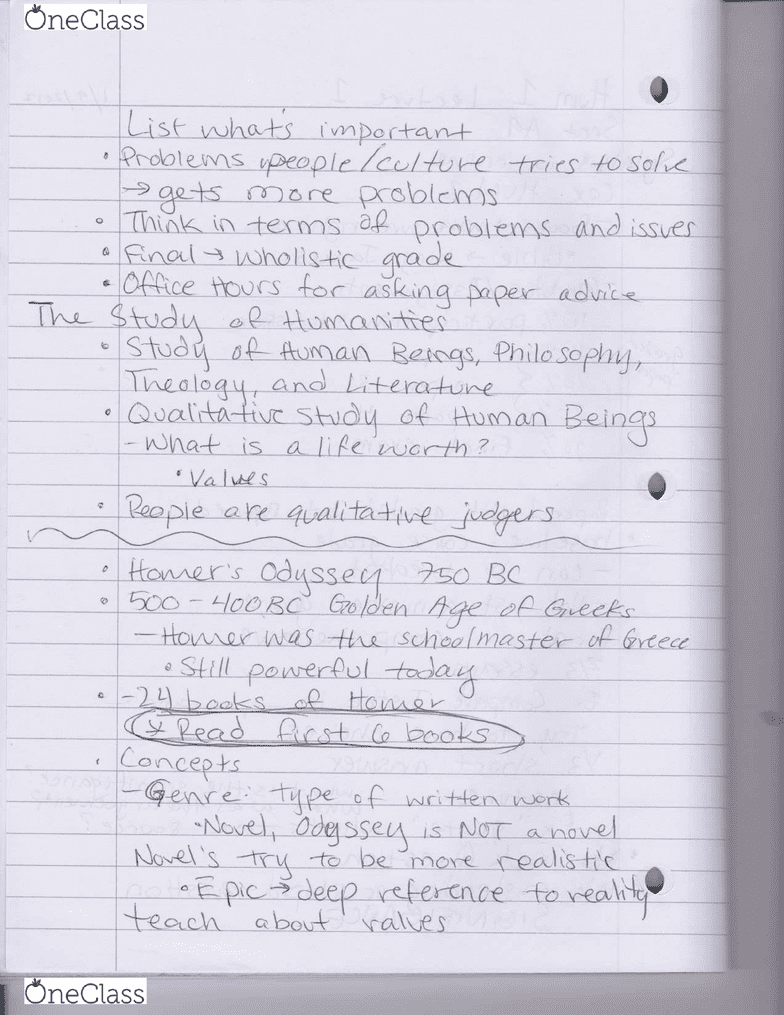 OneClass
List what's important
• Problems people/culture tries to solve
→ gets more problems
• Think in terms of problems and issues
• Final → wholistic grade
• Office Hours for asking paper advice
The Study of Humanities
• Study of Human Beings, Philosophy,
Theology, and Literature
• Qualitative Study of Human Beings
- What is a life worth?
• Values
• People are qualitative judgers
• Homer's Odyssey 750 BC
• 500-400BC Golden Age of Greeks
- Homer was the schoolmaster of Greece
• Still powerful today
• -24 books of Homer
* Read first 6 books
• Concepts
- Genre: type of written work
• Novel, Odyssey is NOT a novel
Novel's try to be more realistic
• Epic → deep reference to reality
teach about values
OneClass